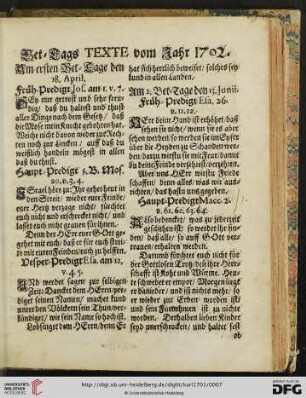 Bet-Tags TEXTE vom Jahr 1702.
Am ersten Bet-Tage den
28. April.
Früh-Predigt Jos. am 1. v. 7.
SEy nur getrost und sehr freu-
dig/ daß du haltest und thust
aller Dinge nach dem Gesetz/ daß
die Mose mein Knecht gebotten hat.
Weiche nicht davon weder zur Rech-
ten noch zur Lincken/ auff daß du
weißlich handeln mögest in allen
das du thust.
Haupt-Predigt 5. B. Mos.
20. v. 3. 4.
ISrael höre zu: Ihr gehet heut in
den Streit/ wieder eure Feinde/
euer Hertz verzage nicht/ fürchtet
euch nicht und erschrecket nicht und
lasset euch nicht grauen für ihnen.
Denn der HErr euer GOtt ge-
gehet mit euch/ daß er für euch strei-
te mit euren Feinden/ euch zu helffen.
Vesper-Predigt Esa. am 12,
v. 4. 5.
UNd werdet sagen zur selbigen
Zeit: Dancket dem HErrn pre-
diget seinen Namen/ machet kund
unter den Völckern sein Thun/ ver-
kündiget/ wie sein Name so hoch ist.
Lobsinget dem HErrn, denn Er
hat sich herrlich beweiset/ solches sey
kund in allen Landen.
Am 2. Bet-Tage den 23. Junii.
Früh-Predigt Esa. 26.
v. 11. 12.
HErr deine Hand ist erhöhet/ daß
sehen sie nicht/ wenn sie es aber
sehen werden/ so werden sie im Eyfer
über die Heyden zu Schanden wer-
den. Dazu wirstu sie mit Feur/ damit
du deine Feinde verzehrest/ verzehren.
Aber uns HErr wirstu Friede
schaffen/ denn alles/ was wir aus-
richten/ das hastu uns gegeben.
Haupt-Predigt Macc. 2.
v. 61. 62. 63. 64.
ALso bedencket/ was zu jederzeit
geschehen ist: so werdet ihr fin-
den/ daß alle/ so auff GOtt ver-
trauen/ erhalten werden.
Darumb fürchtet euch nicht für
der Gottlosen Trotz/ den ihre Herr-
schafft ist Koht und Würme. Heu-
te schwebet er empor/ Morgen liegt
er darnieder/ und ist nichts mehr/ so
er wieder zur Erden worden ist/
und sein Fürnehmen ist zu nicht
worden. Derhalben lieben Kinder
seyd unerschrocken/ und haltet fest
ob
http://digi.ub.uni-heidelberg.de/diglit/karl1701/0007
© Universitätsbibliothek Heidelberg